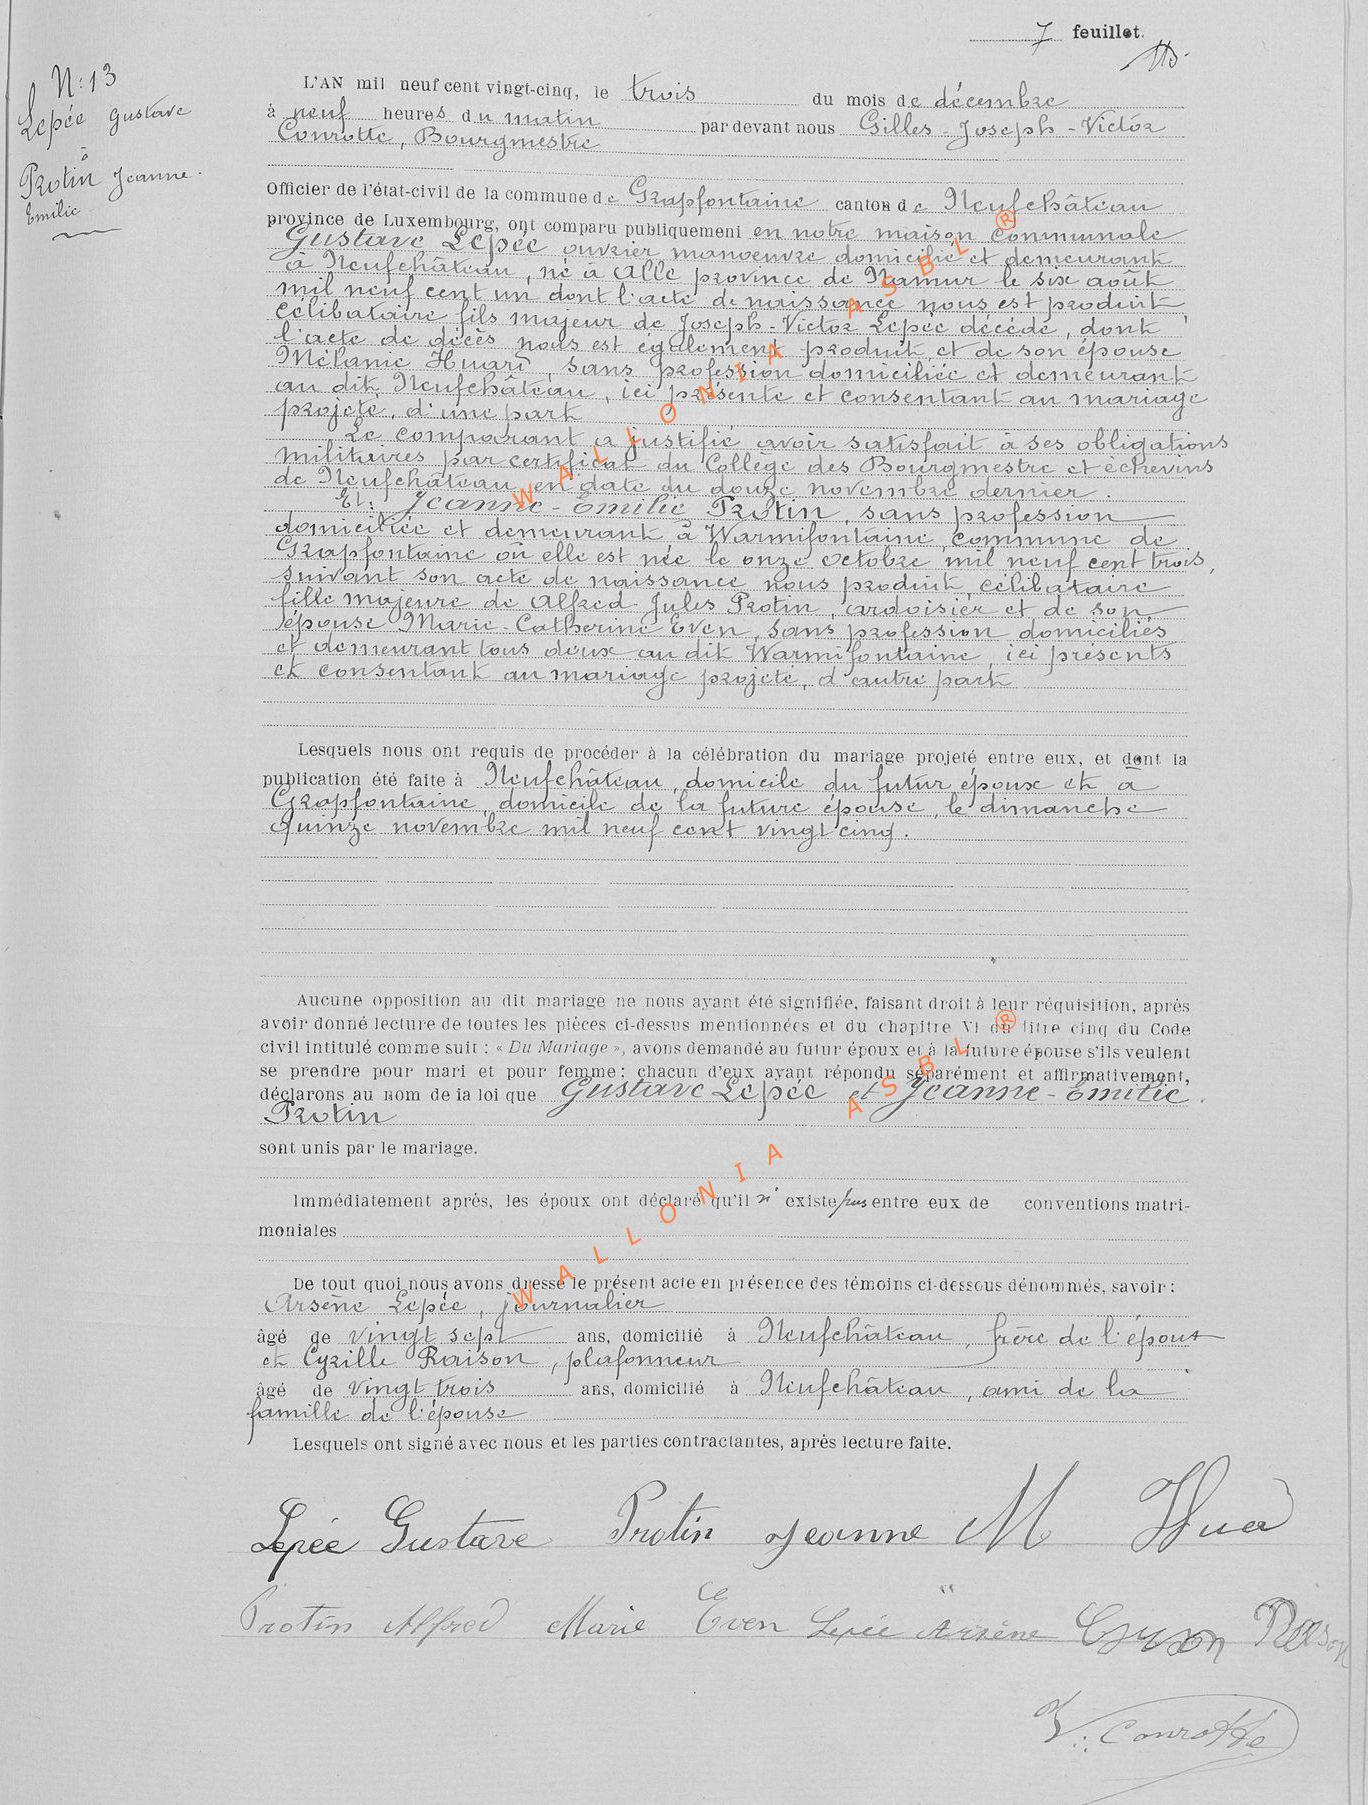 7 feuillet.
N: 13
Lepée Gustave
à
Protin Jeanne-
Emilie
L'AN mil neuf cent vingt-cinq, le trois du mois de décembre
à neuf heures du matin par devant nous Gilles-Joseph-Victor
Conrotte, Bourgmestre
Officier de l'état-civil de la commune de Grapfontaine canton de Neufchâteau
province de Luxembourg, ont comparu publiquement en notre maison communale
Gustave Lepée ouvrier manoeuvre domicilié et demeurant
à Neufchâteau, né à Alle province de Namur le six août
mil neuf cent un dont l'acte de naissance nous est produit,
célibataire fils majeur de Joseph-Victor Lepée décédé, dont
l'acte de décès nous est également produit et de son épouse
Mélanie Huart, sans profession domiciliée et demeurant
au dit Neufchâteau, ici présente et consentant au mariage
projeté, d'une part
Le comparant a justifié avoir satisfait à ses obligations
militaires par certificat du Collège des Bourgmestre et échevins
de Neufchâteau en date du douze novembre dernier.
Et: Jeanne-Emilie Protin, sans profession
domiciliée et demeurant à Warmifontaine, commune de
Grapfontaine où elle est née le onze octobre mil neuf cent trois,
suivant son acte de naissance nous produit, célibataire
fille majeure de Alfred Jules Protin, ardoisier et de son
épouse Marie-Catherine Even, sans profession domiciliés
et demeurant tous deux au dit Warmifontaine, ici présents
et consentant au mariage projeté, d'autre part
Lesquels nous ont requis de procéder à la célébration du mariage projeté entre eux, et dont la
publication été faite à Neufchâteau, domicile du futur époux et à
Grapfontaine, domicile de la future épouse, le dimanche
quinze novembre mil neuf cent vingt cinq.
Aucune opposition au dit mariage ne nous ayant été signifiée, faisant droit à leur réquisition, après
avoir donné lecture de toutes les pièces ci-dessus mentionnées et du chapitre VI du titre cinq du Code
civil intitulé comme suit : « Du Mariage », avons demandé au futur époux et à la future épouse s'ils veulent
se prendre pour mari et pour femme ; chacun d'eux ayant répondu séparément et affirmativement,
déclarons au nom de la loi que Gustave Lepée et Jeanne-Emilie
Protin
sont unis par le mariage.
Immédiatement après, les époux ont déclaré qu'il n'existe pas entre eux de conventions matri-
moniales
De tout quoi nous avons dressé le présent acte en présence des témoins ci-dessous dénommés, savoir :
Arsène Lepée, journalier
âgé de vingt sept ans, domicilié à Neufchâteau, frère de l'époux
et Cyrille Raison, plafonneur
âgé de vingt trois ans, domicilié à Neufchâteau, ami de la
famille de l'épouse
Lesquels ont signé avec nous et les parties contractantes, après lecture faite.
Lepée Gustave Protin Jeanne M Hua
Protin Alfred Marie Even Lepée Arsène Raison
V. Conrotte
WALLONIA ASBL ®
WALLONIA ASBL ®